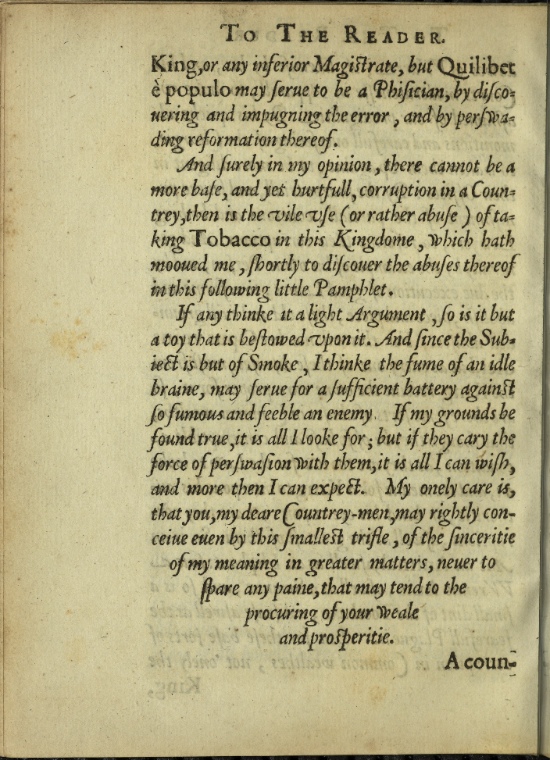 TO THE READER.
King, or any inferior Magiſtrate, but Quilibet
è populo may ſerue to be a Phiſician, by diſco-
uering and impugning the error, and by perſwa-
ding reformation thereof.
And ſurely in my opinion, there cannot be a
more baſe, and yet hurtfull, corruption in a Coun-
trey, then is the vile vſe (or rather abuſe) of ta-
king Tobacco in this Kingdome, which hath
mooued me, ſhortly to diſcouer the abuſes thereof
in this following little Pamphlet.
If any thinke it a light Argument, ſo is it but
a toy that is beſtowed vpon it. And ſince the Sub-
iect is but of Smoke, I thinke the fume of an idle
braine, may ſerue for a ſufficient battery againſt
ſo fumous and feeble an enemy. If my grounds be
found true, it is all I looke for; but if they cary the
force of perſwaſion with them, it is all I can wiſh,
and more then I can expect. My onely care is,
that you, my deare Countrey-men, may rightly con-
ceiue euen by this ſmalleſt trifle, of the ſinceritie
of my meaning in greater matters, neuer to
ſpare any paine, that may tend to the
procuring of your weale
and proſperitie.
A coun-